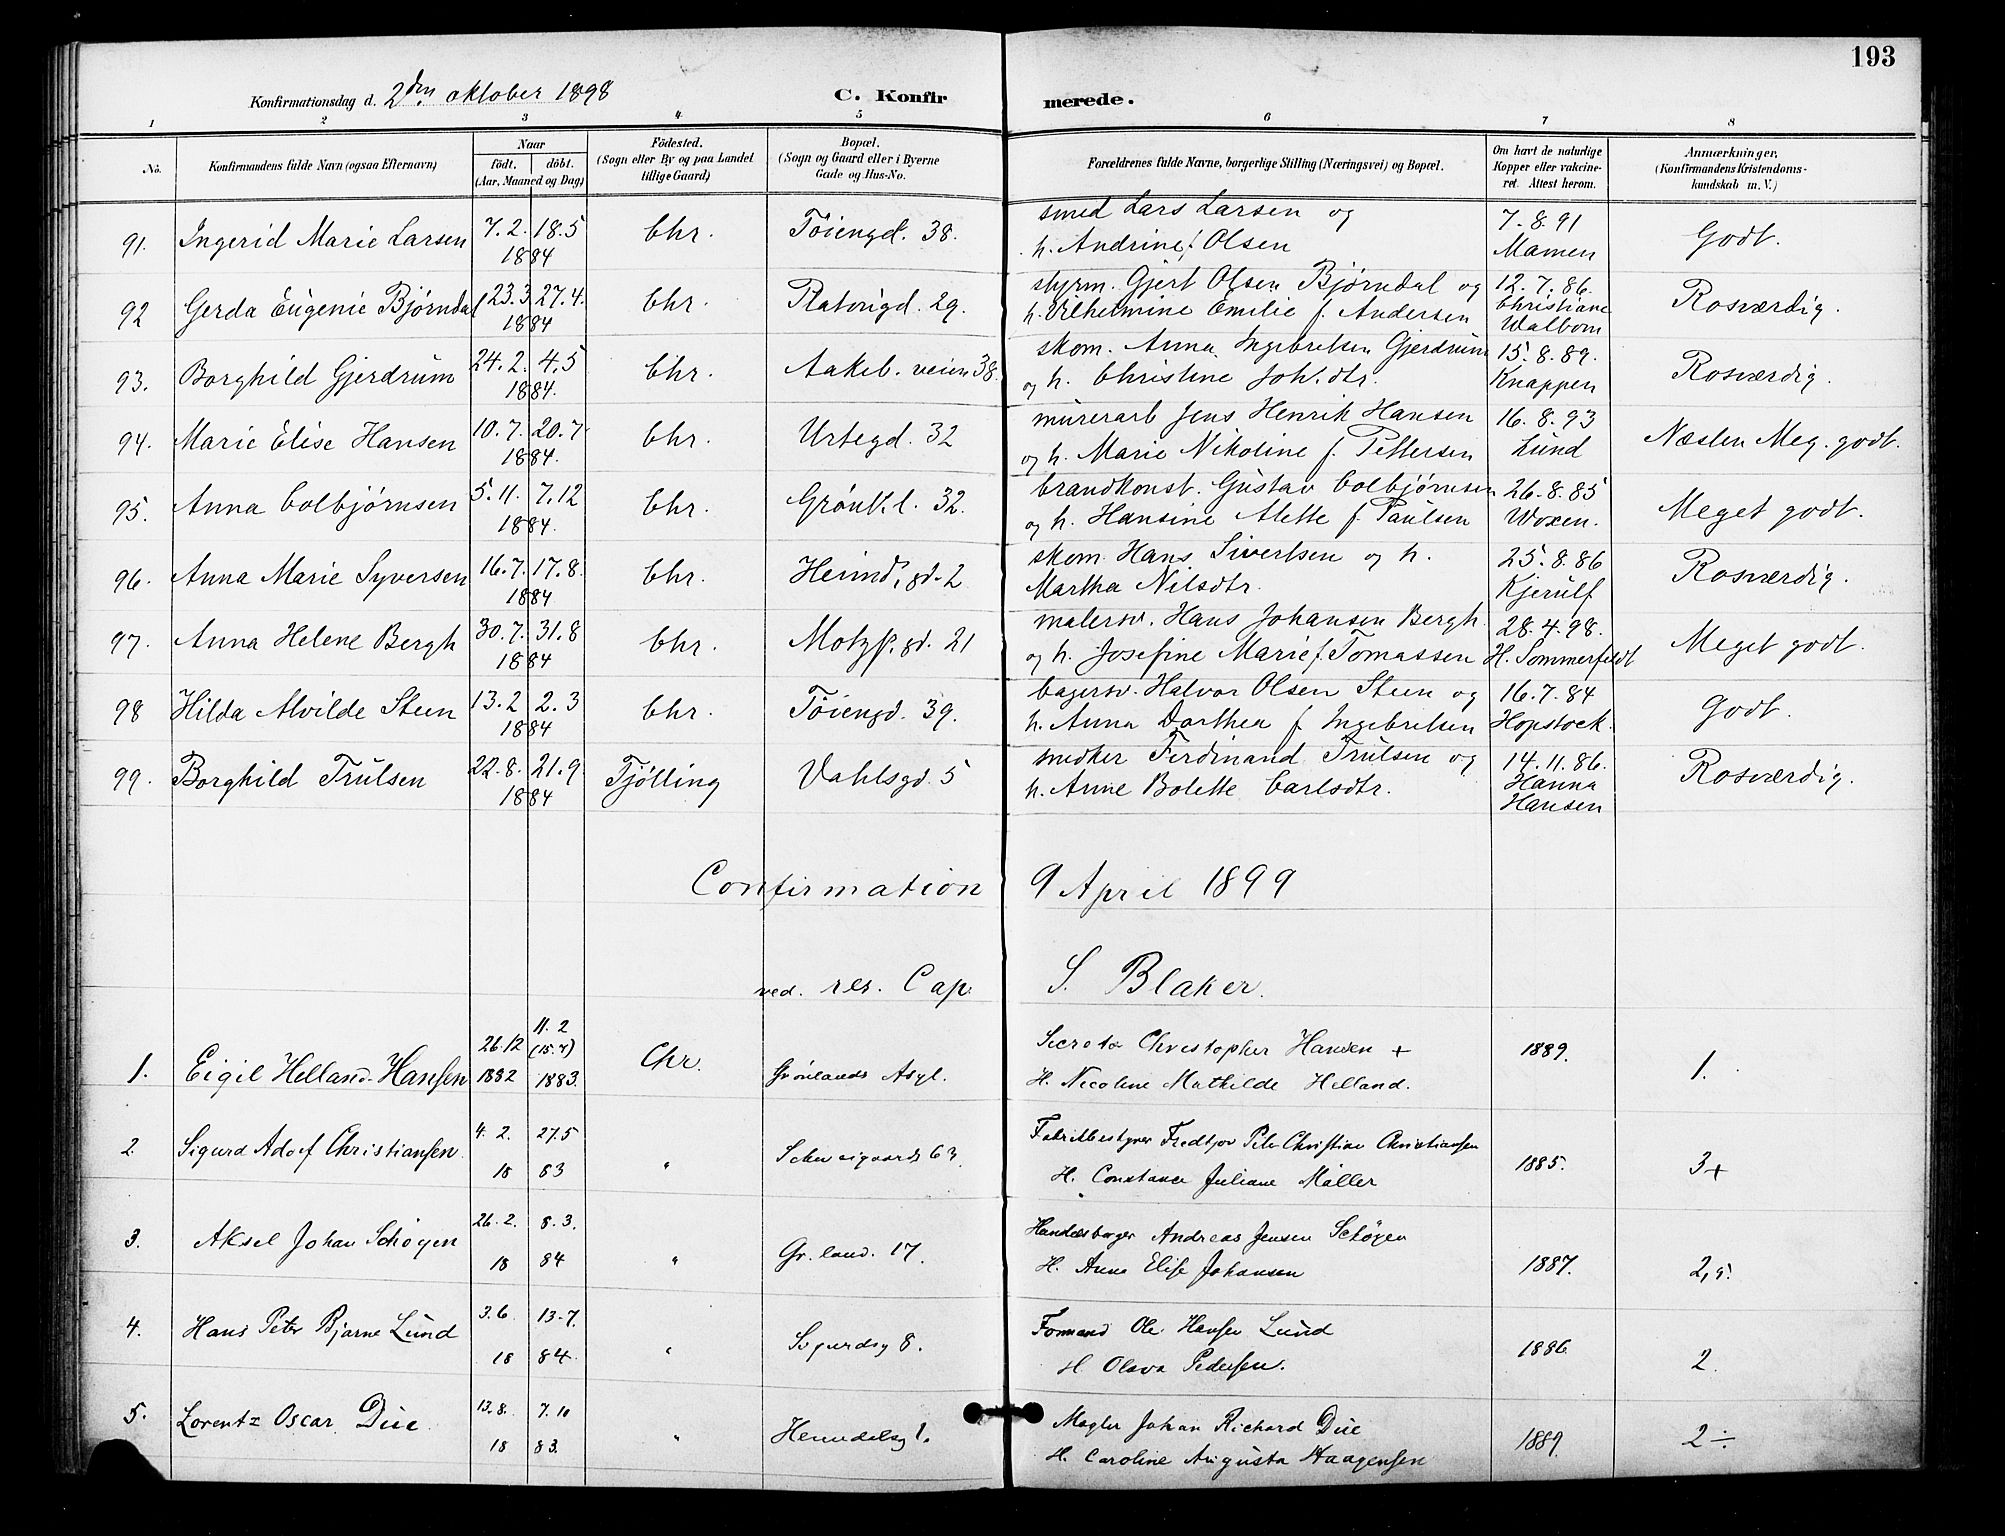 193
Konfirmationsdag d. 2den oktober 1898 C. Konfirmerede.
1 2 3 4 5 6 7 8
No. Konfirmandens fulde Navn (ogsaa Efternavn)
Naar
födt. döbt.
(Aar, Maaned og Dag)
Födested.
(Sogn eller By og paa Landet
tillige Gaard)
Bopæl.
(Sogn og Gaard eller i Byerne
Gade og Hus-No.
Forældrenes fulde Navne, borgerlige Stilling (Næringsvei) og Bopæl.
Om havt de naturlige
Kopper eller vakcine-
ret. Attest herom.
Anmærkninger,
(Konfirmandens Kristendoms-
kundskab m. V.)
91. Ingerid Marie Larsen 7.2. 18.5 1884 Chr. Töiengd. 38. smed Lars Larsen og
h. Andrine f. Olsen 7.8.91 Mamen Godt.
92 Gerda Eugenie Bjørndal 23.3 27.4. 1884 Chr. Platougd. 29. styrm. Gjert Olsen Bjørndal og
h. Vilhelmine Emilie f. Andersen 12.7.86. Christiane Walbom Rosværdig.
93. Borghild Gjerdrum 24.2. 4.5 1884. Chr. Aakeb. veien 38. skom. Anna Ingebretsen Gjerdrum
og h. Christine Joh.dtr. 15.8.89. Knappen Rosværdig.
94. Marie Elise Hansen 10.7. 20.7 1884. Chr. Urtegd. 32 murerarb Jens Henrik Hansen
og h. Marie Nikoline f. Pettersen 16.8.93 Lund Næsten Meg. godt.
95. Anna Colbjørnsen 5.11. 7.12 1884. Chr. Grönl.l. 32. brandkonst. Gustav Colbjørnsen
og h. Hansine Alette f. Paulsen 26.8.85 Woxen. Meget godt.
96. Anna Marie Syversen 16.7. 17.8. 1884 Chr. Heimd. gd. 2 skom. Hans Sivertsen og h.
Martha Nilsdtr. 25.8.86 Kjerulf Rosværdig.
97. Anna Helene Bergh 30.7. 31.8 1884 Chr. Motzf. gd. 21 malersv. Hans Johansen Bergh
og h. Josefine Marie f. Tomassen 28.4.98. H. Sommerfeldt Meget godt.
98 Hilda Alvilde Steen 13.2 2.3 1884 Chr. Töiengd. 39. bagersv. Halvor Olsen Steen og
h. Anna Dorthea f. Ingebretsen 16.7.84 Hopstock. Godt.
99. Borghild Trulsen 22.8. 21.9. 1884 Tjölling Vahlsgd. 5 snedker Ferdinand Trulsen og
h. Anne Bolette Carlsdtr. 14.11.86. Hanna Hansen Rosværdig.
Confirmation 9 April 1899
ved. res. Cap. S. Blaker.
1. Eigil Helland-Hansen 26.12 1882 11.2 (15.7) 1883. Chr. Grönlands Asyl. Secretæ Christopher Hansen +
H. Nicoline Mathilde Helland. 1889. 1.
2. Sigurd Adolf Christiansen. 4.2. 27.5 18 83 " Schweigaards 63. Fabrikbestyrer Fredtjov Peter Christian Christiansen
H. Constance Juliane Möller 1885. 3+
3. Aksel Johan Schögen 26.2. 8.3. 18 84 " Gr. land. 17. Handelsborger Andreas Jensen Schögen
H. Anna Elise Johansen 1887. 2,5.
4. Hans Peter Bjarne Lund 3.6. 13.7. 18 84. " Sigurdsg 8. Formand Ole Hansen Lund
H. Olava Pedersen. 1886. 2.
5. Lorentz Oscar Due 13.8. 7.10 18 83. " Heimdalsg 1. Mægler Johan Richard Due
H. Caroline Augusta Haagensen 1889. 2÷